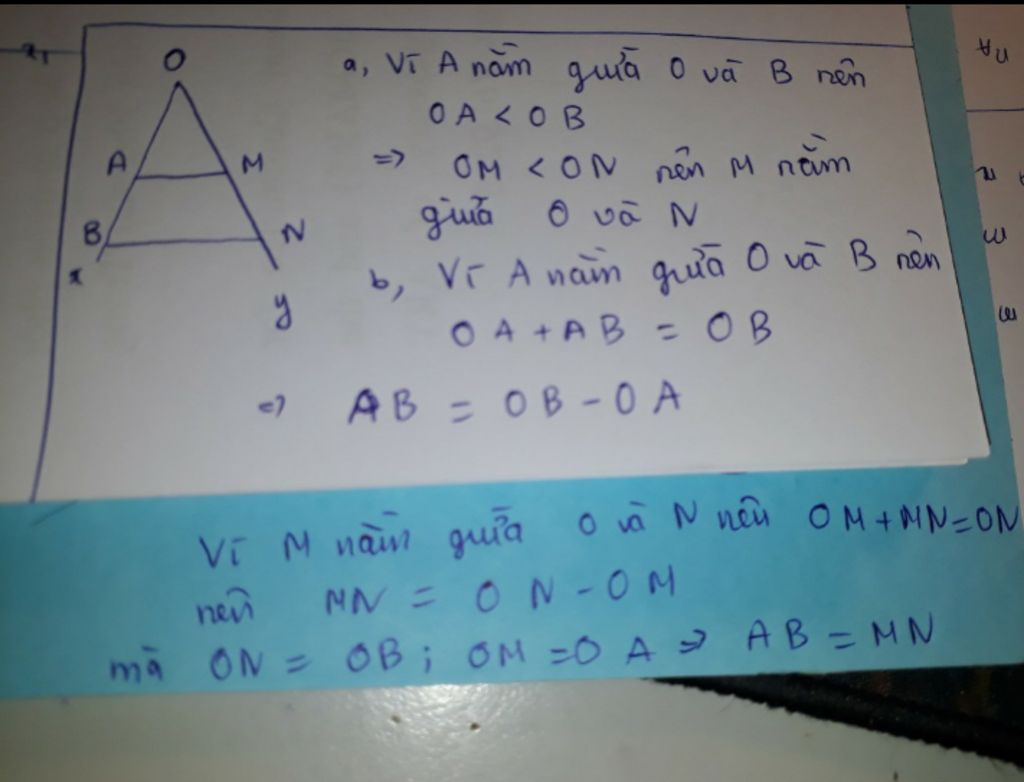 O
A
M
B
N
x
y
a, Vì A nằm giữa O và B nên
OA < OB
=> OM < ON nên M nằm
giữa O và N
b, Vì A nằm giữa O và B nên
OA + AB = OB
=> AB = OB - OA
Vì M nằm giữa O và N nên OM + MN = ON
nên MN = ON - OM
mà ON = OB ; OM = OA => AB = MN